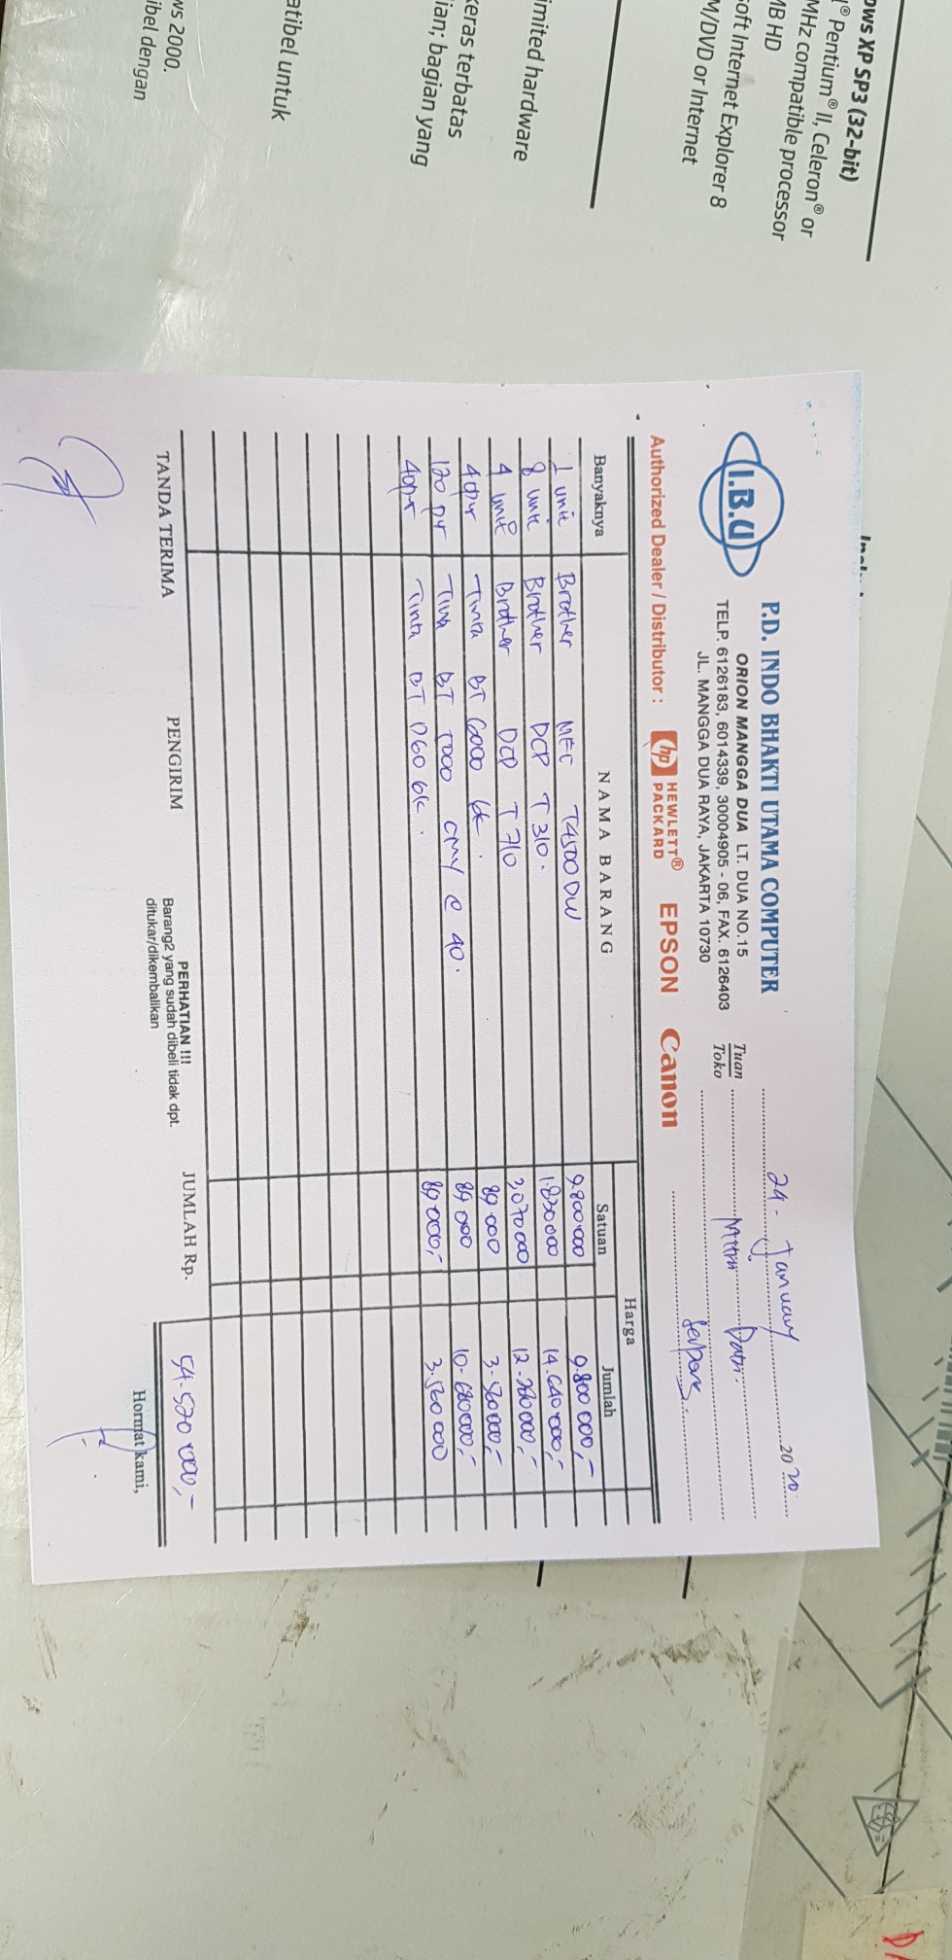 ows XP SP3 (32-bit)
® Pentium® II, Celeron® or
MHz compatible processor
MB HD
soft Internet Explorer 8
M/DVD or Internet
imited hardware
keras terbatas
ian; bagian yang
atibel untuk
ws 2000.
ibel dengan
I.B.U
P.D. INDO BHAKTI UTAMA COMPUTER
ORION MANGGA DUA LT. DUA NO.15
TELP. 6126183, 6014339, 30004905 - 06, FAX. 6126403
JL. MANGGA DUA RAYA, JAKARTA 10730
24 - January 2020
Tuan
Toko
Mitra Data.
Serpong.
Authorized Dealer / Distributor : hp HEWLETT® PACKARD EPSON Canon
Banyaknya NAMA BARANG Harga
Satuan Jumlah
1 unit Brother MFC T4500 DW 9.800.000 9.800 000,-
8 unit Brother DCP T 310. 1.830 000 14.640 000,-
4 unit Brother DCP T 710 3,070 000 12.280 000,-
40 pr Tinta BT 6000 bk. 89 000 3.560 000,-
120 pr Tinta BT 5000 CMY @ 40. 89 000 10.680 000,-
40 pr Tinta BT D60 bk. 89 000,- 3.560 000
TANDA TERIMA PENGIRIM
PERHATIAN !!!
Barang2 yang sudah dibeli tidak dpt.
ditukar/dikembalikan
JUMLAH Rp. 54.520 000,-
Hormat kami,